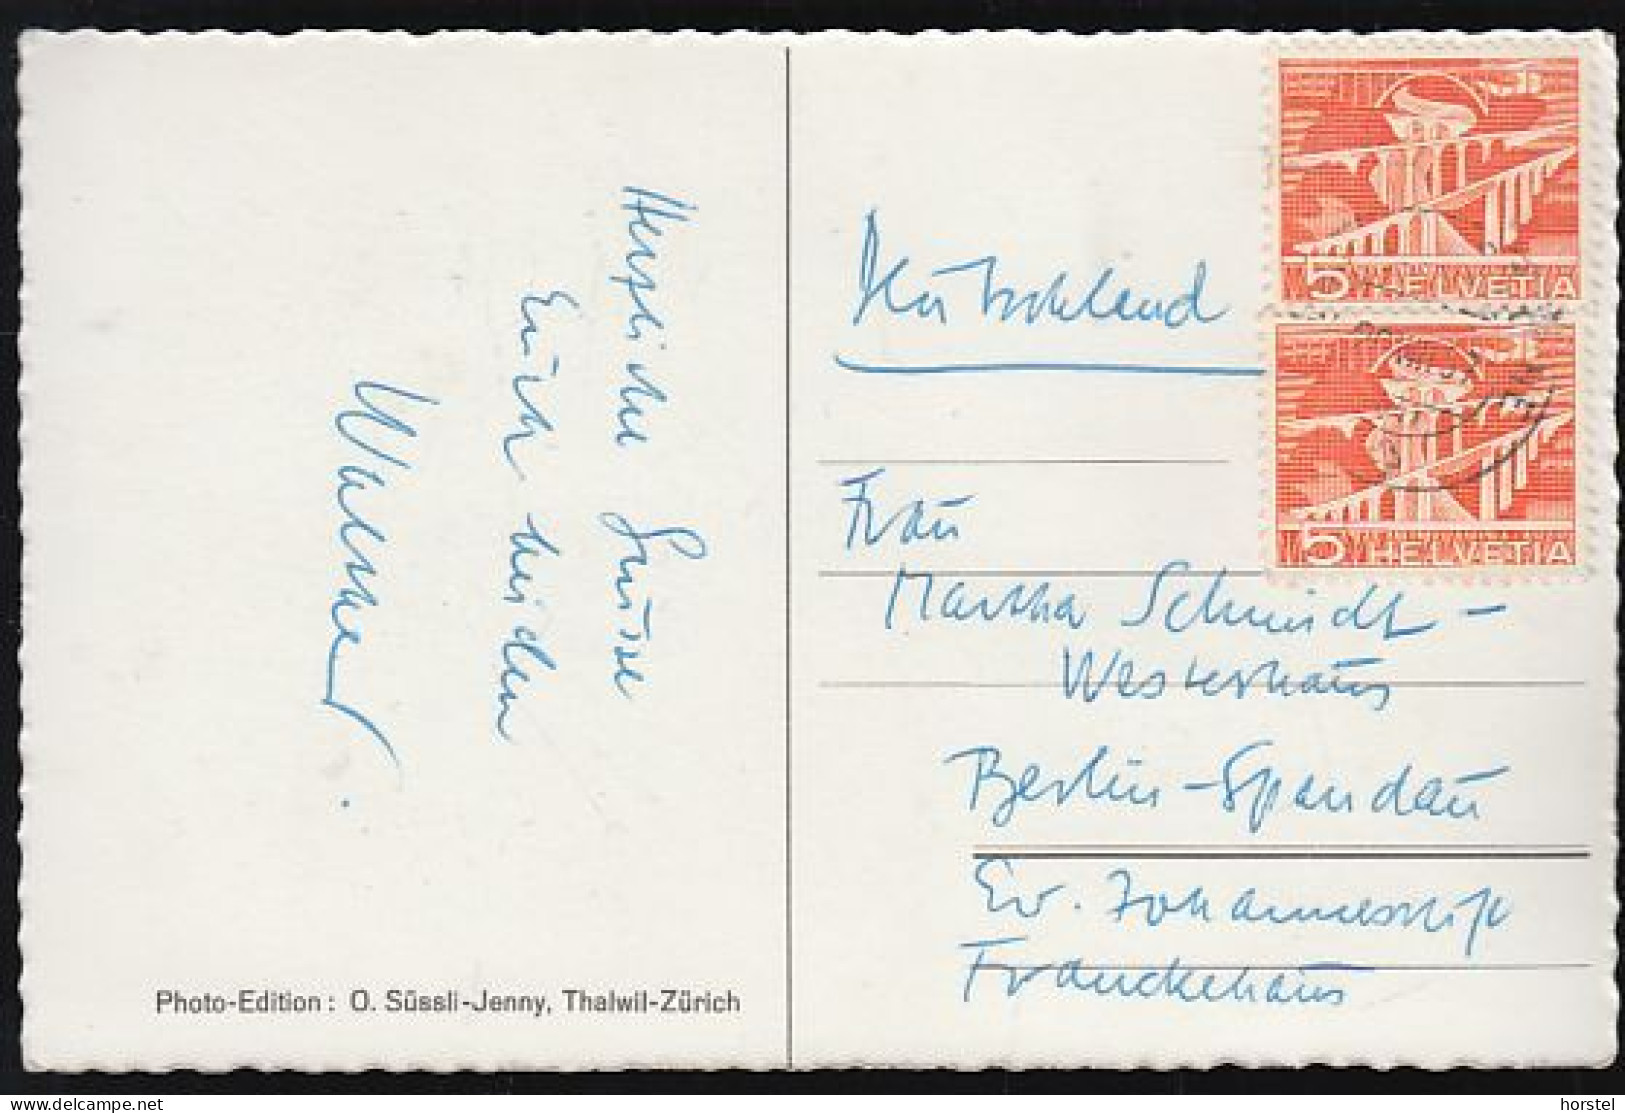 Herzliche Grüsse
Euch beiden
Werner.
Photo-Edition: O. Süssli-Jenny, Thalwil-Zürich
5 HELVETIA
5 HELVETIA
Deutschland
Frau
Martha Schmidt-
Westerhaus
Berlin-Spandau
Ev. Johannesstift
Franckehaus
delcampe.net
horstel